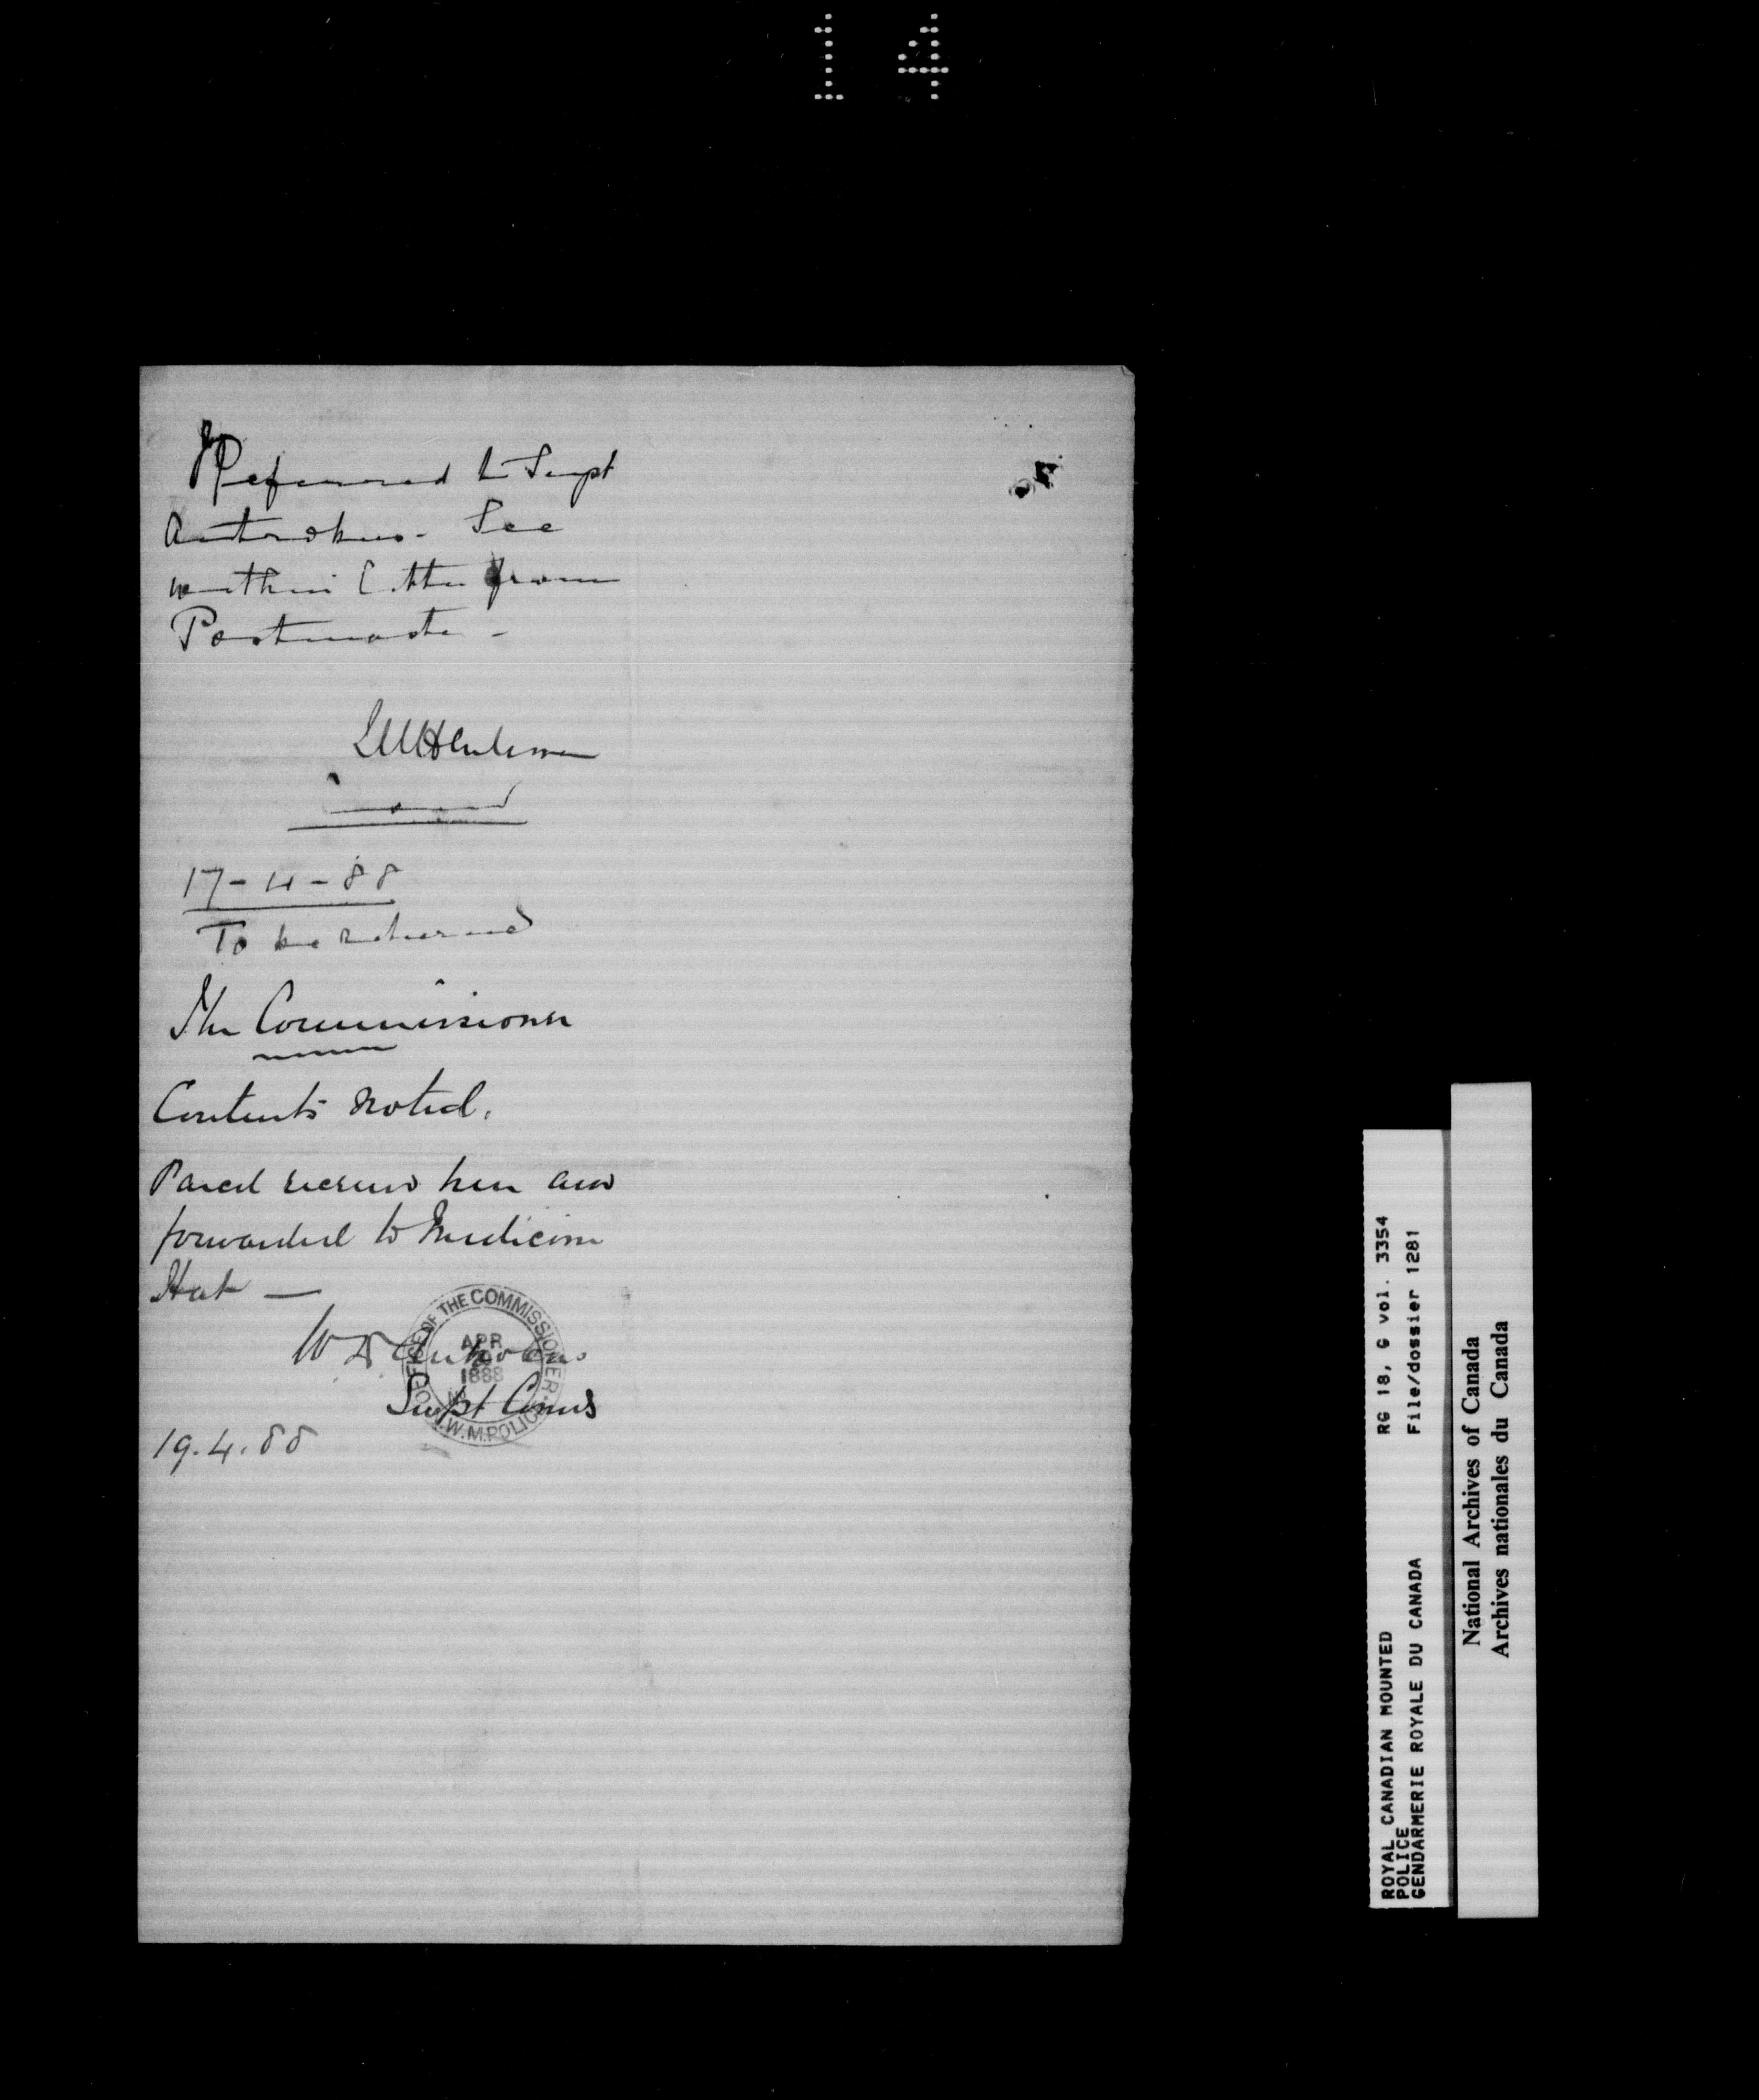 14
Referred to Supt
Antrobus. See
within letter from
Postmaster -
LWHerchmer
17-4-88
To be returned
The Commissioner
Contents noted.
Parcel received here and
forwarded to Medicine
Hat —
W D Antrobus
Supt Comdg
19.4.88
OFFICE OF THE COMMISSIONER
APR
1888
N.W.M.POLICE
ROYAL CANADIAN MOUNTED RG 18, G vol. 3354
POLICE
GENDARMERIE ROYALE DU CANADA File/dossier 1281
National Archives of Canada
Archives nationales du Canada